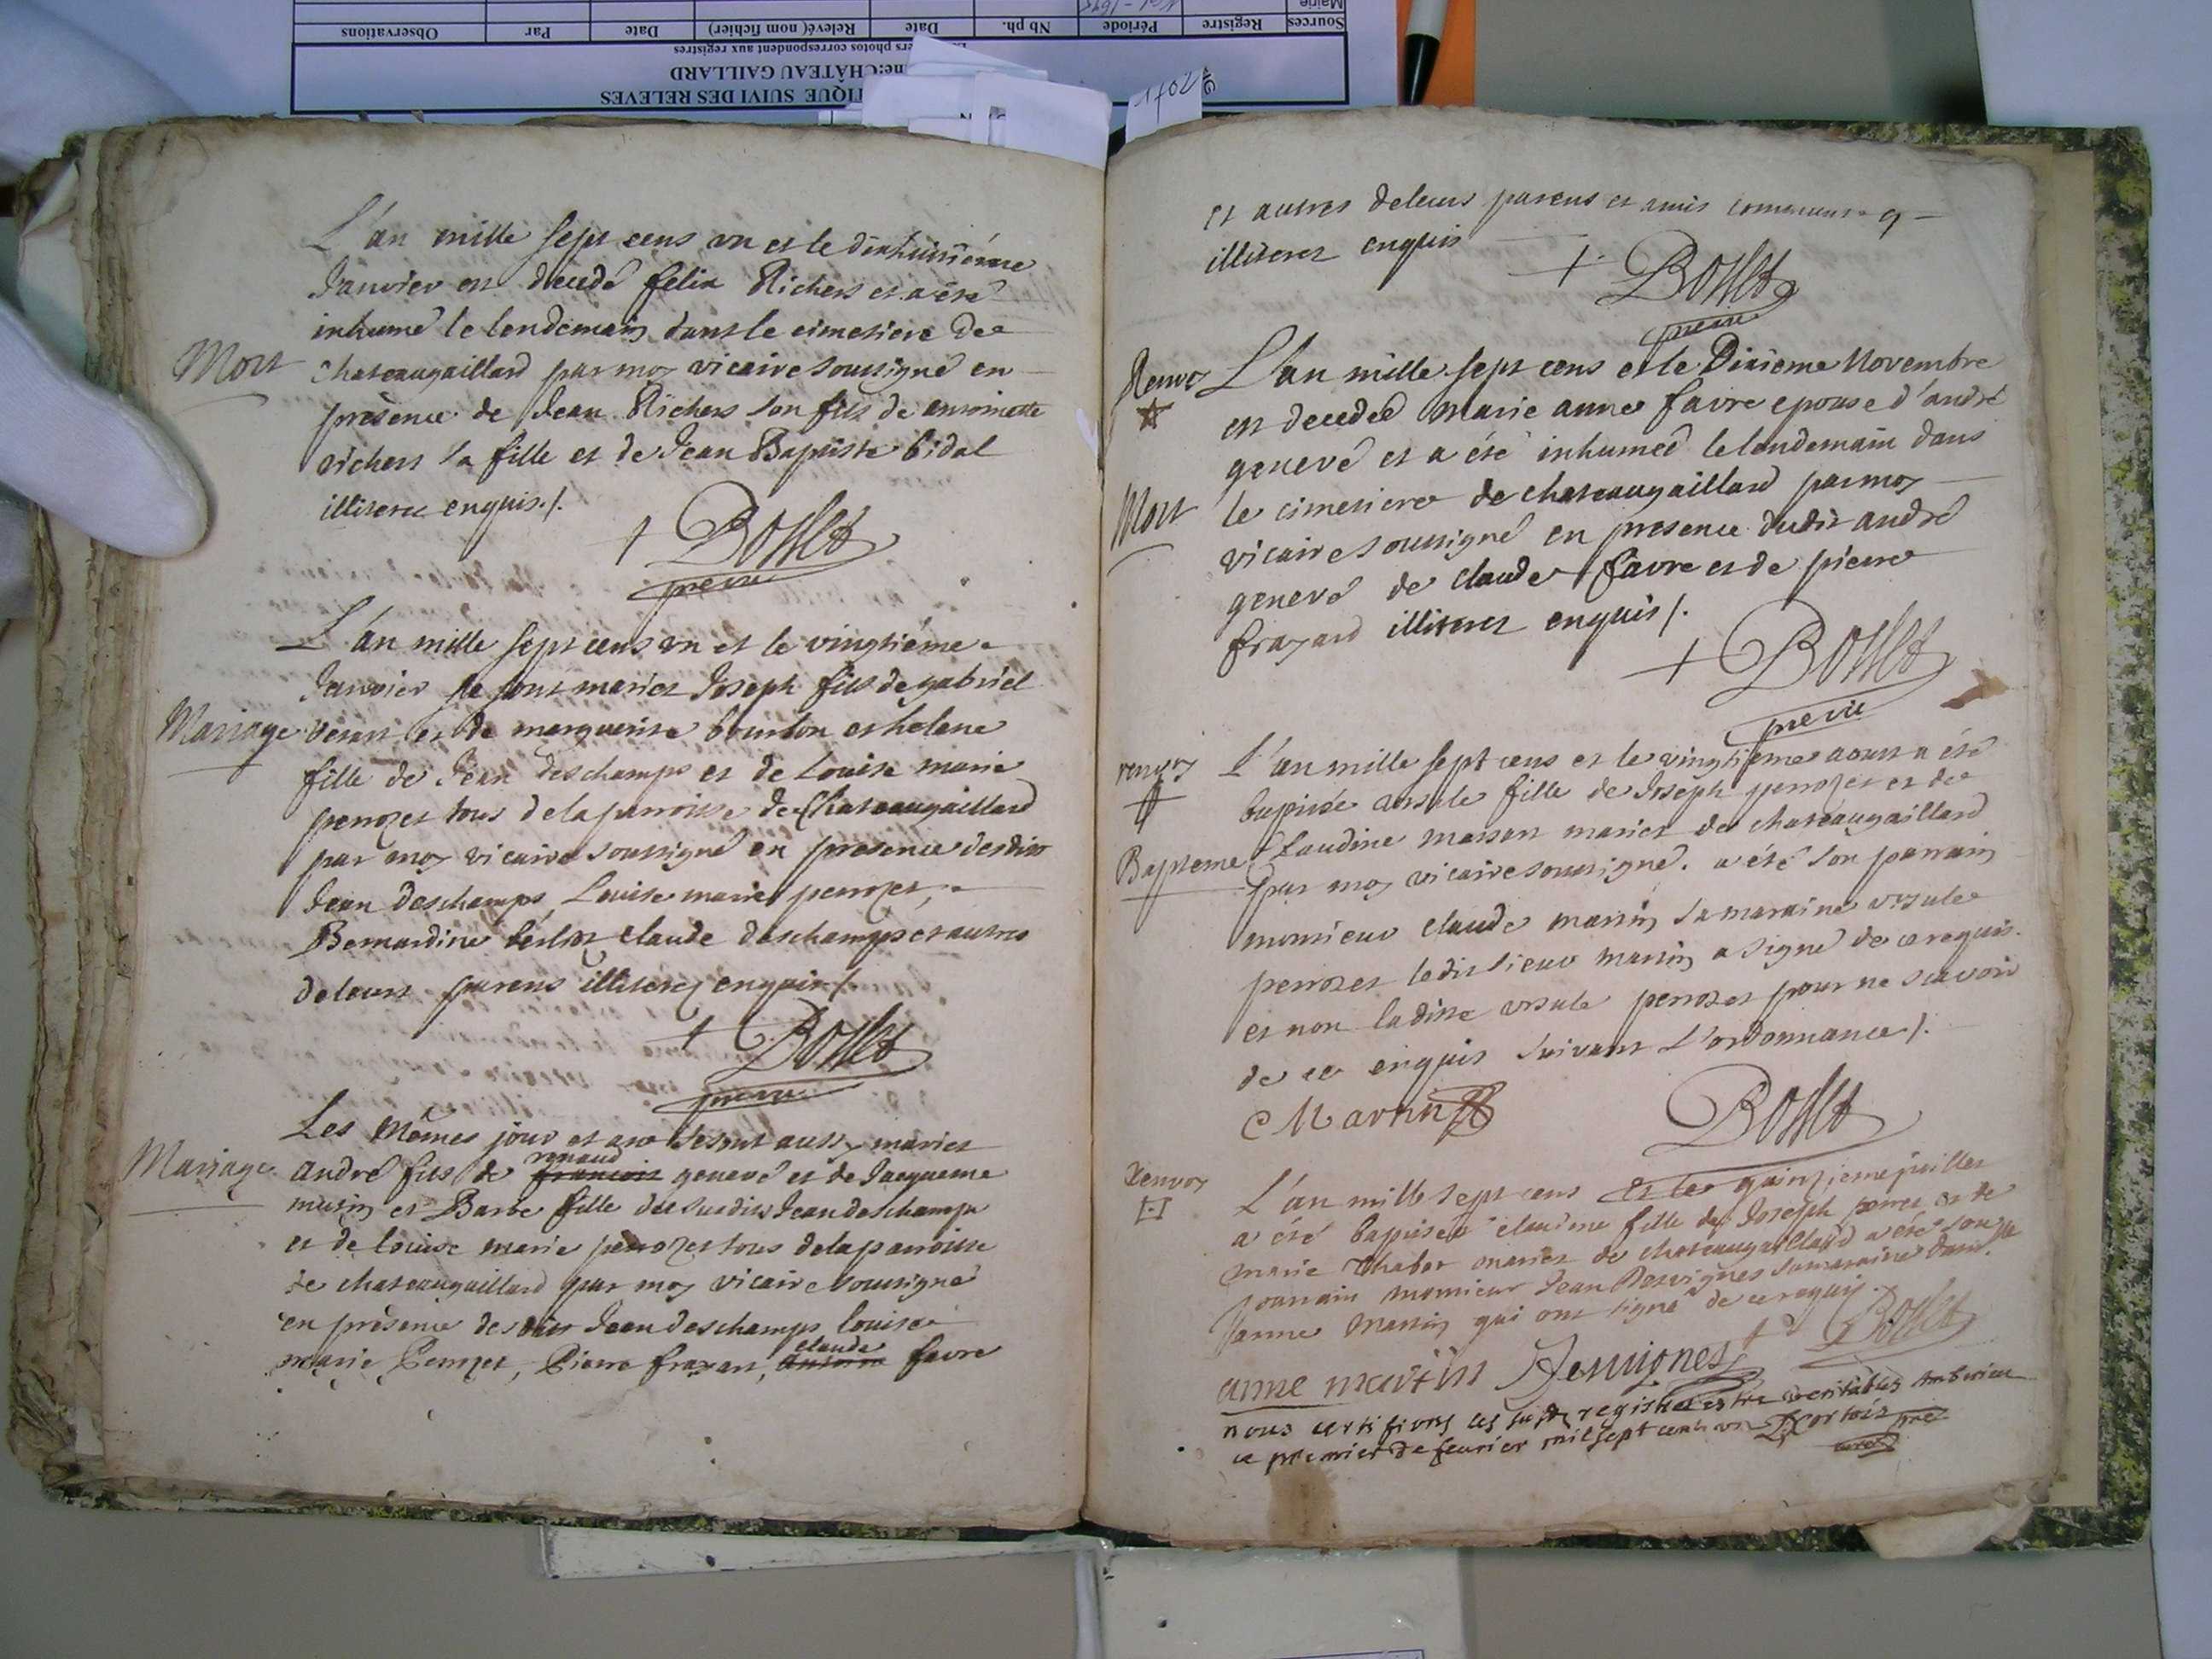 Mairie
Sources Registre Période Nb ph. Date Relevé (nom fichier) Date Par Observations
ers photos correspondent aux registres
ne: CHÂTEAU GAILLARD
TIQUE SUIVI DES RELEVES
L'an mille sept cens vn et le dixhuitiéme
Janvier est decedé felix Richers et a été
inhumé le lendemain dans le cimetiere de
Mort
chateaugaillard par moy vicaire soussigné en
presence de Jean Richers son fils de antoinette
richers sa fille et de Jean Baptiste bidal
illiterez enquis./.
+ Bosset
prevre
L'an mille sept cens vn et le vingtiéme
Janvier se sont mariez Joseph fils de gabriel
Mariage
veran et de marguerite bourbon et helene
fille de Jean deschamps et de Louise marie
perrozet tous de la parroisse de Chateaugaillard
par moy vicaire soussigné en presence desdits
Jean deschamps, Louise marie perrozet,
Bernardine claude deschamps et autres
de leurs parens illiterez enquis/.
+ Bosset
prevre
Les mêmes jour et an se sont aussy mariez
Mariage
renaud
andré fils de francois genevé et de Jacqueme
musin et Barbe fille des susdits Jean deschamps
et de louise marie perrozet tous de la parroisse
de chateaugaillard par moy vicaire soussigné
en présence desdits Jean deschamps louise
claude
marie Perrozet, Pierre frazart, favre
et autres de leurs parens et amis
illiterez enquis
+ Bosset
prevre
Renvoy
L'an mille sept cens et le Dixieme Novembre
est decedeé Marie anne favre epouse d'andré
genevé et a été inhumeé le lendemain dans
Mort
le cimetiere de chateaugaillard par moy
vicaire soussigné en presence dudit andré
genevé de claude favre et de pierre
frazard illiterez enquis/.
+ Bosset
prevre
renvoy
L'an mille sept cens et le vingtieme aoust a été
baptisée ursule fille de Joseph perrozet et de
Bapteme
Claudine massart mariez de chateaugaillard
par moy vicaire soussigné. a été son parrain
monsieur claude martin sa marraine ursule
perrozet ledit sieur martin a signé de ce requis
et non ladite ursule perrozet pour ne scavoir
de ce enquis suivant L'ordonnance/.
C Martin
Bosset
Renvoy
L'an mille sept cens et le quinzieme juillet
a été baptiseé claudine fille de Joseph et de
marie chabot mariez de chateaugaillard a été son
parrain monsieur Jean Desvignes sa marraine
Janne Martin qui ont signé de ce requis.
+ Bosset
anne martin Desvignes
nous certifions les susd registres estre veritables Amberieu
ce premier de feurier mil sept cent vn